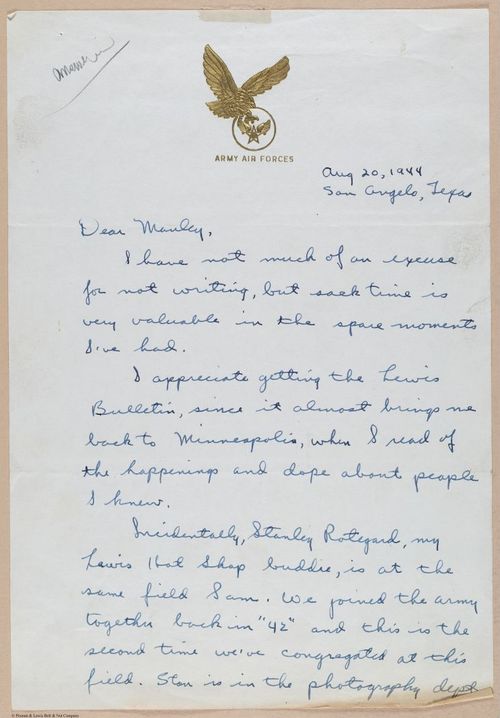 Answered
ARMY AIR FORCES
Aug 20, 1944
San Angelo, Texas
Dear Manley,
I have not much of an excuse
for not writing, but sack time is
very valuable in the spare moments
I've had.
I appreciate getting the Lewis
Bulletin, since it almost brings me
back to Minneapolis, when I read of
the happenings and dope about people
I knew.
Incidentally, Stanley Rotegard, my
Lewis Hot Shop buddie, is at the
same field I am. We joined the army
together back in "42" and this is the
second time we've congregated at this
field. Stan is in the photography dept